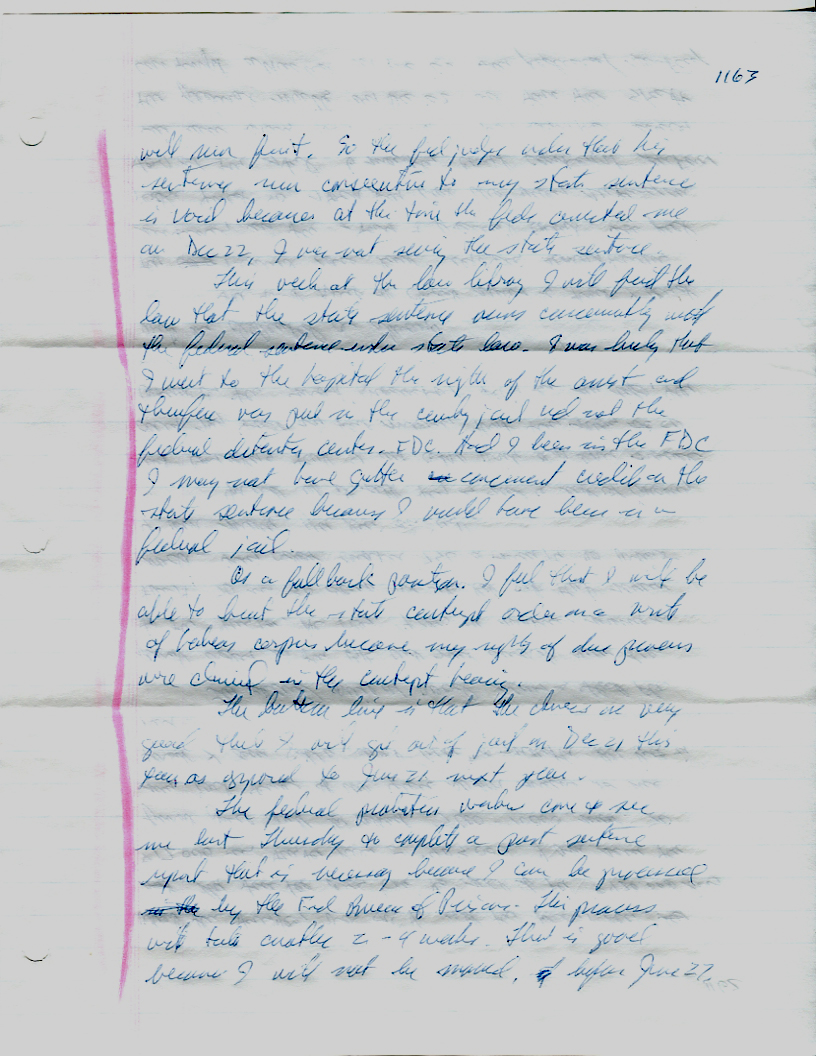 1163
will run first. So the fed judges order that his
sentence run consecutive to my state sentence
is void because at the time the feds convicted me
on Dec 22, I was not serving the state sentence.
This week at the law library I will find the
law that the state sentence runs concurrently with
the federal sentence under state law. I was lucky that
I went to the hospital the night of the arrest and
therefore was put in the county jail and not the
federal detention center. FDC. Had I been in the FDC
I may not have gotten concurrent credit on the
state sentence because I would have been in a
federal jail.
As a fallback position. I feel that I will be
able to beat the state contempt order on a writ
of habeas corpus because my rights of due process
were denied in the contempt hearing.
The bottom line is that the chances are very
good that I will get out of jail on Dec 21 this
year as opposed to June 21 next year.
The federal probation worker came to see
me last Thursday to complete a post sentence
report that is necessary because I can be processed
by the Fed Bureau of Prisons. This process
will take another 2-4 weeks. That is good
because I will not be moved, before June 27,